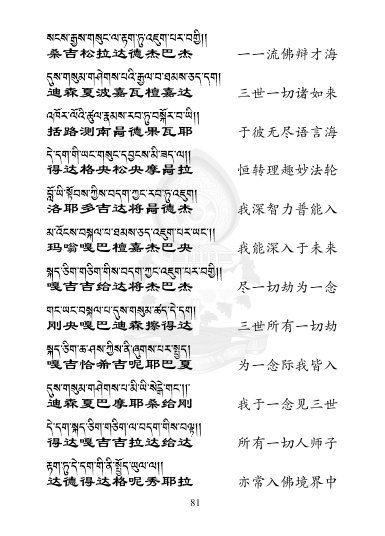 སངས་རྒྱས་གསུང་ལ་རྟག་ཏུ་འཇུག་པར་བགྱི།།
桑吉松拉达德杰巴杰 一一流佛辩才海
དུས་གསུམ་གཤེགས་པའི་རྒྱལ་བ་ཐམས་ཅད་དག།
迪森夏波嘉瓦檀嘉达 三世一切诸如来
འཁོར་ལོའི་ཚུལ་རྣམས་རབ་ཏུ་བསྐོར་བ་ཡི།།
括路测南昌德果瓦耶 于彼无尽语言海
དེ་དག་གི་ཡང་གསུང་དབྱངས་མི་ཟད་ལ།།
得达格央松央摩昌拉 恒转理趣妙法轮
བློ་ཡི་སྟོབས་ཀྱིས་བདག་ཀྱང་རབ་ཏུ་འཇུག།
洛耶多吉达将昌德杰 我深智力普能入
མ་འོངས་བསྐལ་པ་ཐམས་ཅད་འཇུག་པར་ཡང་།།
玛嗡嘎巴檀嘉杰巴央 我能深入于未来
སྐད་ཅིག་གཅིག་གིས་བདག་ཀྱང་འཇུག་པར་བགྱི།།
嘎吉吉给达将杰巴杰 尽一切劫为一念
གང་ཡང་བསྐལ་པ་དུས་གསུམ་ཚད་དེ་དག།
刚央嘎巴迪森擦得达 三世所有一切劫
སྐད་ཅིག་ཆ་ཤས་ཀྱིས་ནི་ཞུགས་པར་སྤྱད།།
嘎吉恰希吉呢耶巴夏 为一念际我皆入
དུས་གསུམ་གཤེགས་པ་མི་ཡི་སེངྒེ་གང་།།
迪森夏巴摩耶桑给刚 我于一念见三世
དེ་དག་སྐད་ཅིག་གཅིག་ལ་བདག་གིས་བལྟ།།
得达嘎吉吉拉达给达 所有一切人师子
རྟག་ཏུ་དེ་དག་གི་ནི་སྤྱོད་ཡུལ་ལ།།
达德得达格呢秀耶拉 亦常入佛境界中
81